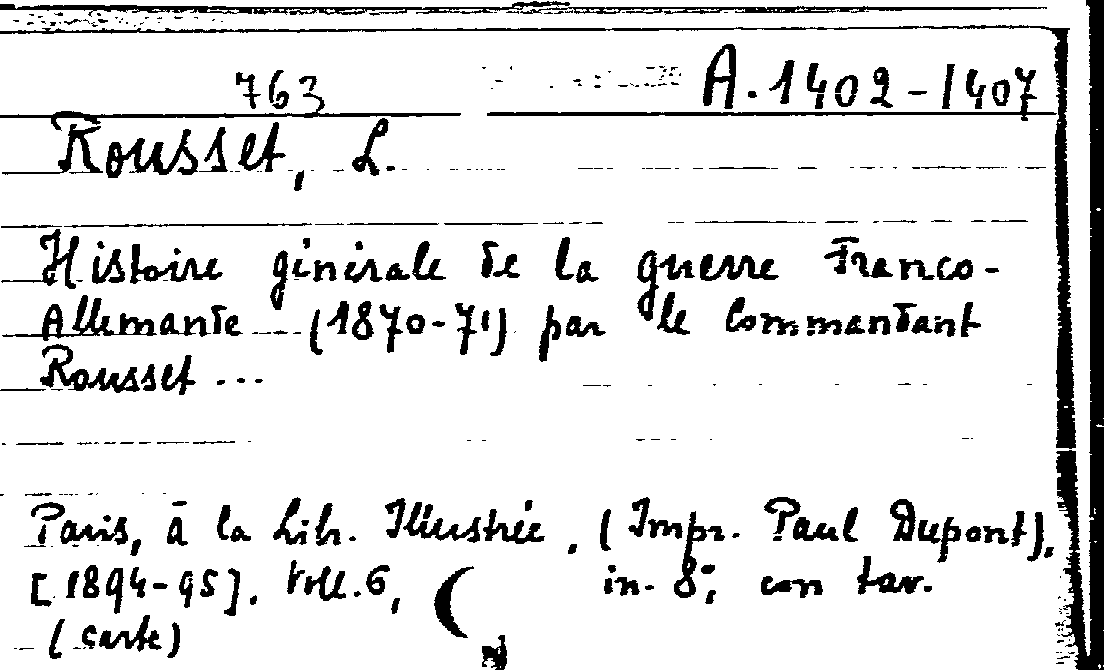 763 A.1402-1407
Rousset, L.
Histoire générale de la guerre Franco-
Allemande (1870-71) par le Commandant
Rousset ...
Paris, à la Lib. Illustrée, (Impr. Paul Dupont),
[1894-95]. voll. 6, ( in-8°; con tav.
(carte)